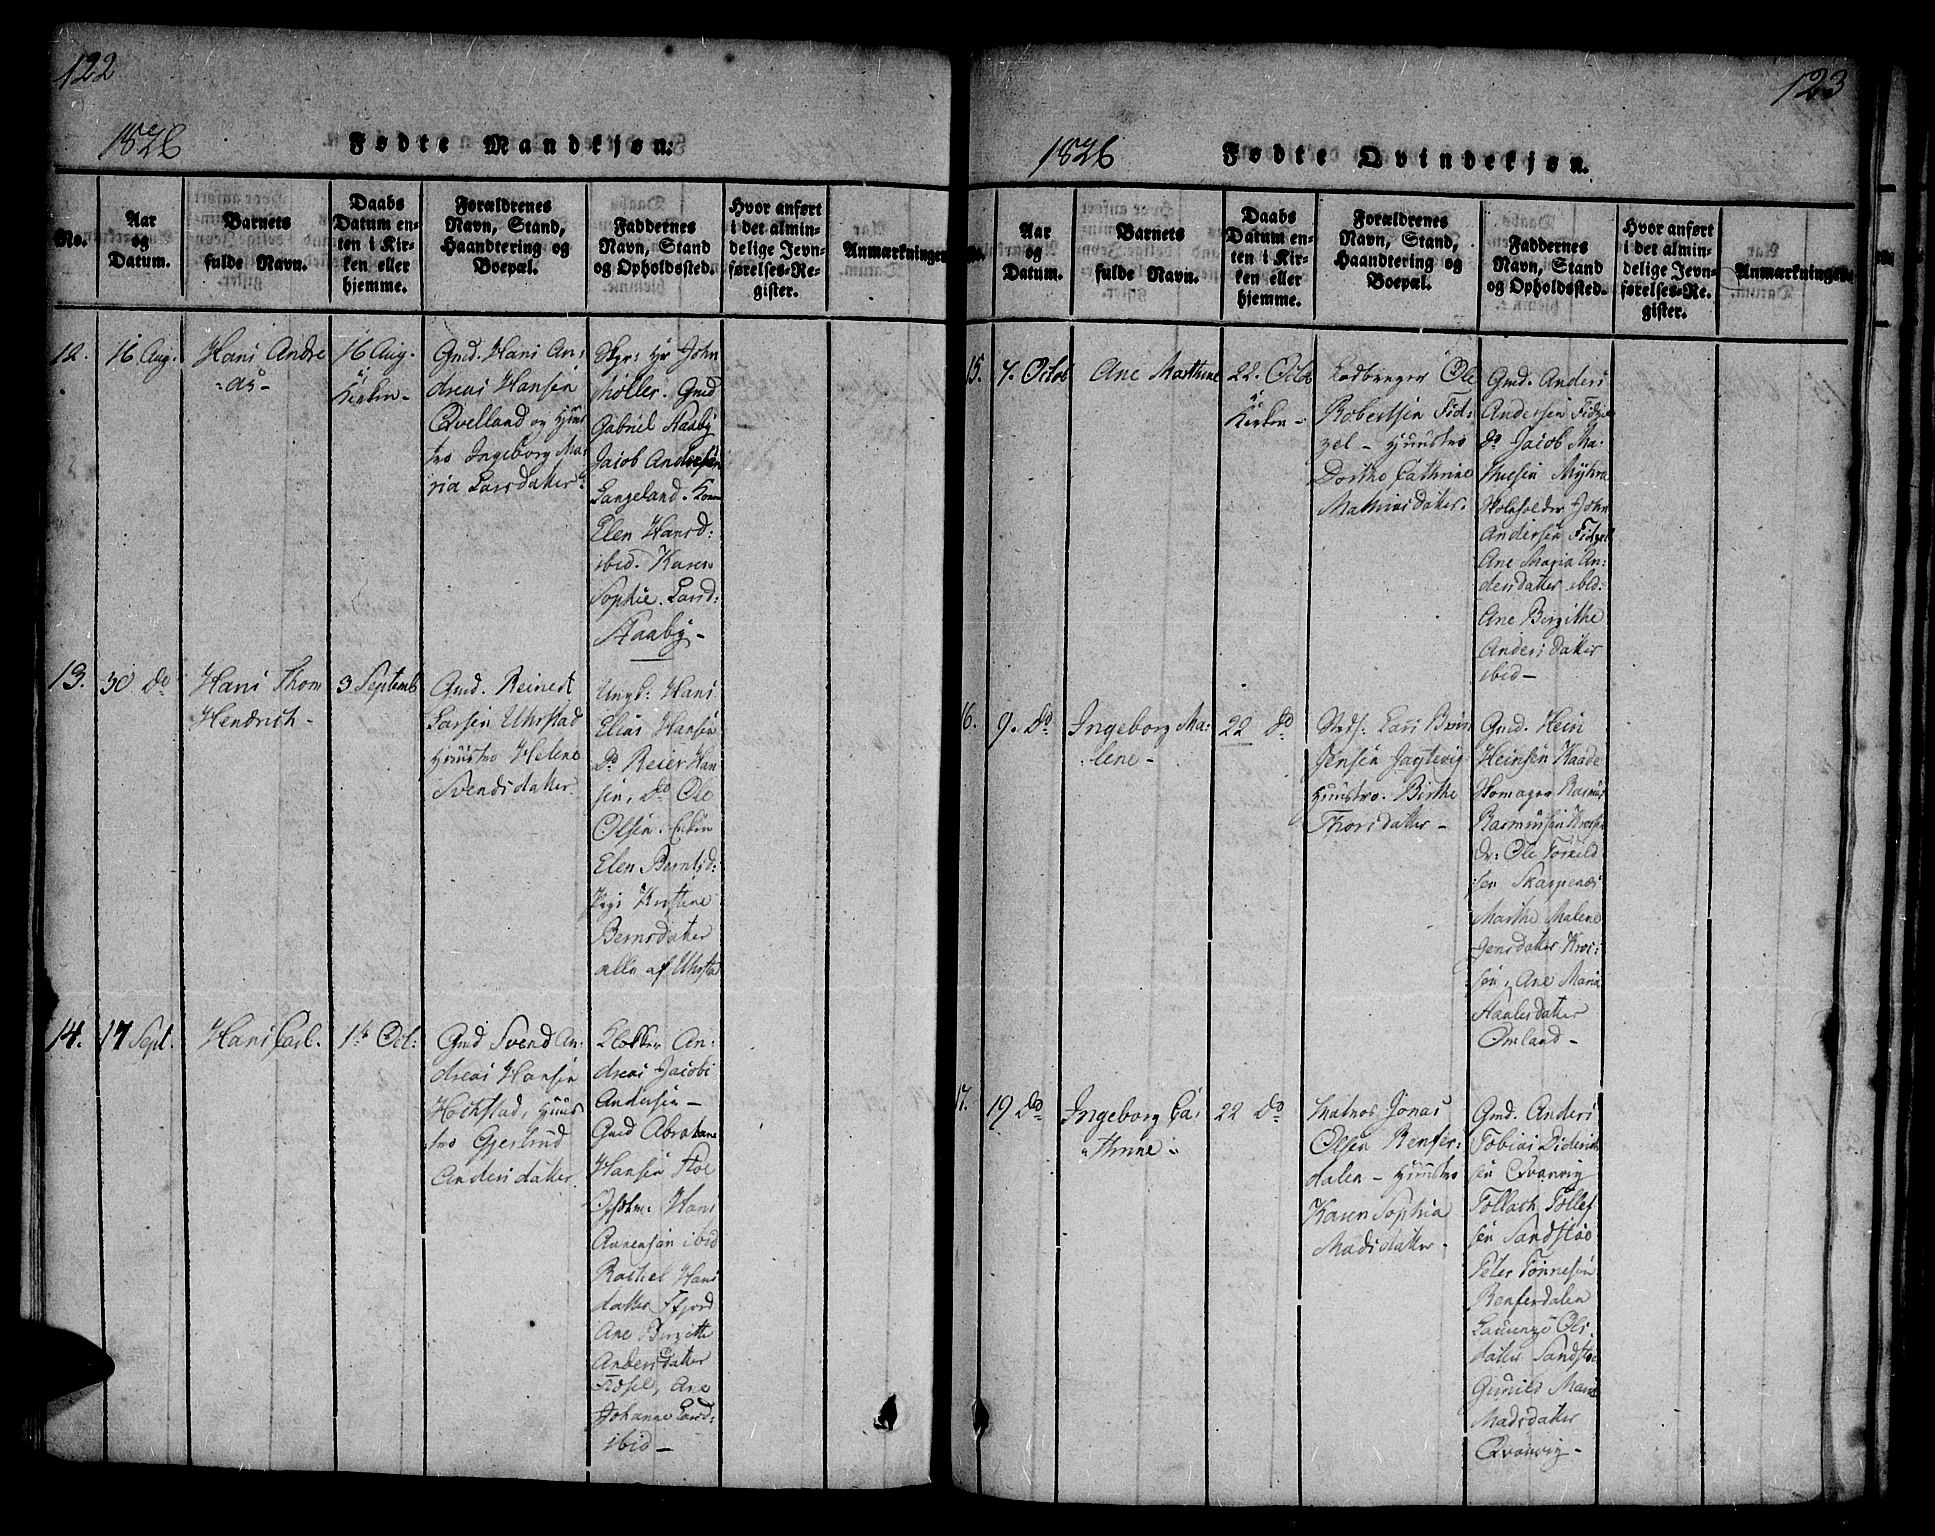 122
1826
Fødte Mandkjøn:
No.
Aar
og
Datum.
Barnets
fulde Navn.
Daabs
Datum en-
ten i Kir-
ken eller
hjemme.
Forældrenes
Navn, Stand,
Haandtering og
Boepæl.
Faddernes
Navn, Stand
og Opholdssted.
Hvor anført
i det almin-
delige Jevn-
førelses-Re-
gister.
Anmærkninger
12.
16 Aug.
Hans Andre
-as-
16 Aug.
i
Kirken-
Gmd. Hans An:
dreas Hansen
Qvelland og Huus
tro Ingeborg Ma:
ria Larsdatter.
Hr John
Møller. Gmd
Gabriel Aaaby
Jacob Andersen
Langeland.
Elen Hansd:
ibid. Karen
Sophie. Larsd:
Aaaby-
13.
30 do
Hans Thom
Hendrich-
3 Septemb
Gmd. Reinert
Larsen Uhrstad
Huustro Helene
Svendsdatter
Ungd: Hans
Elias Hansen
do Reier Han
sen, do Ole
Olsen. Enken
Elen Berntsd:
Pige Kirstine
Berntsdatter
alle af Uhrsta
14.
17 Sept.
Hans Carl.
1ste Oct:
Gmd Svend An:
dreas Hansen
Hochstad, Huus
tro Gjertrud
Anders datter.
Klokker An:
dreas Jacobi
Andersen-
Gmd Abraham
Hansen
Hans
ibid
Rachel Hans
datter
Ane Birgitte
Andersdatter
Ane
Johanne Larsd:
ibid-
123
1826
Fødte Qvindekjøn.
No.
Aar
og
Datum.
Barnets
fulde Navn.
Daabs
Datum en-
ten i Kir-
ken eller
hjemme.
Forældrenes
Navn, Stand,
Haandtering og
Boepæl.
Faddernes
Navn, Stand
og Opholdssted.
Hvor anført
i det almin-
delige Jevn-
førelses-Re-
gister.
Anmærkninger
15.
7. Octob
Ane Marthine
22. Octob
i
Kirken-
Ole
Robertsen Fid:
zel- Huustro
Dorthe Cathrine
Mathiasdatter.
Gmd. Anders
Andersen Fidzel
do Jacob Ma:
thiesen Myhra
Skoleholder John
Andersen Fidzel
Ane Maria An:
dersdatter ibid:
Ane Birgithe
Anders datter
ibid-
16.
9. do
Ingeborg Ma:
lene-
22 do
Lars Bruun
Jensen Jagtevig
Huustro. Birthe
Thorsdatter-
Gmd. Hein
Heinsen Kaade
Skomager Rasmus
Rasmussen
do: Ole Torkild
sen Skarpenes
Marthe Malene
Jensdatter
Ane Maria
Omland-
17.
19 do
Ingeborg Ca:
thrine
22 do
Matros Jonas
Olsen Renfer:
dalen- Huustro
Karen Sophia
Madsdatter.
Gmd. Anders
Tobias Didrich
sen Qvanvig
Tollach Tollef
sen Sandstøe
Peter Tønnesen
Renferdalen
Laurenze Ols:
datter Sandstøe
Gunild Marie
Madsdatter
Qvanvig-